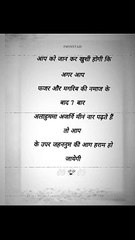 आप को जान कर खुशी होगी कि
अगर आप
फजर और मगरिब की नमाज के
बाद 7 बार
अल्लाहुम्मा अजरनि मीनं नार पढ़ते हैं
तो आप
के उपर जहन्नुम की आग हराम हो
जायेगी